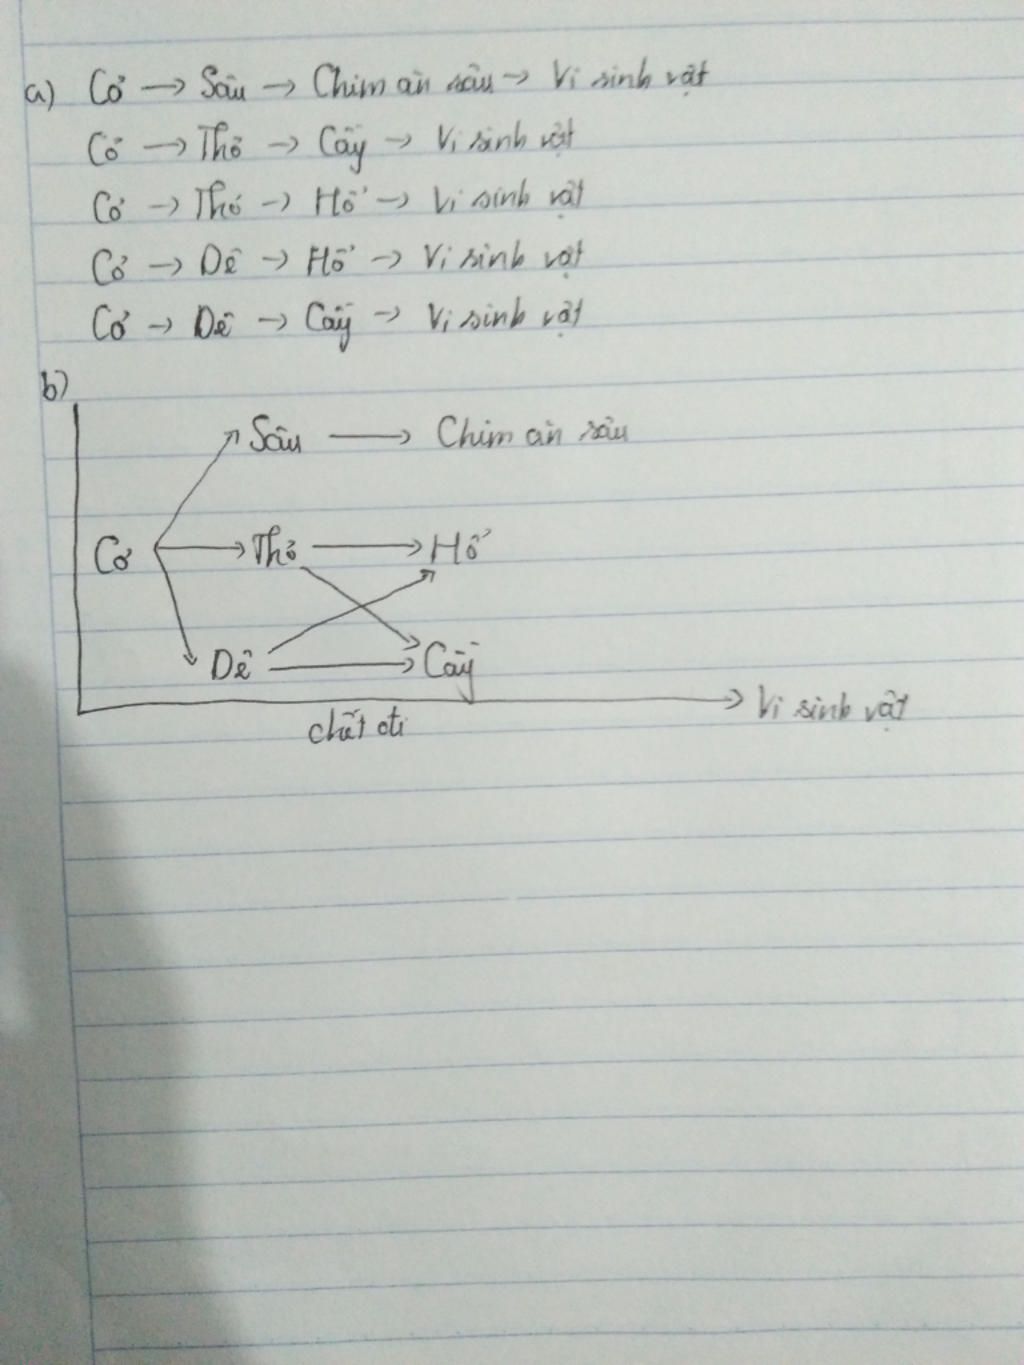 a) Cỏ → Sâu → Chim ăn sâu → Vi sinh vật
Cỏ → Thỏ → Cầy → Vi sinh vật
Cỏ → Thỏ → Hổ → Vi sinh vật
Cỏ → Dê → Hổ → Vi sinh vật
Cỏ → Dê → Cầy → Vi sinh vật
b)
Sâu → Chim ăn sâu
Cỏ → Thỏ → Hổ
Dê → Cầy
→ Vi sinh vật
chết đi